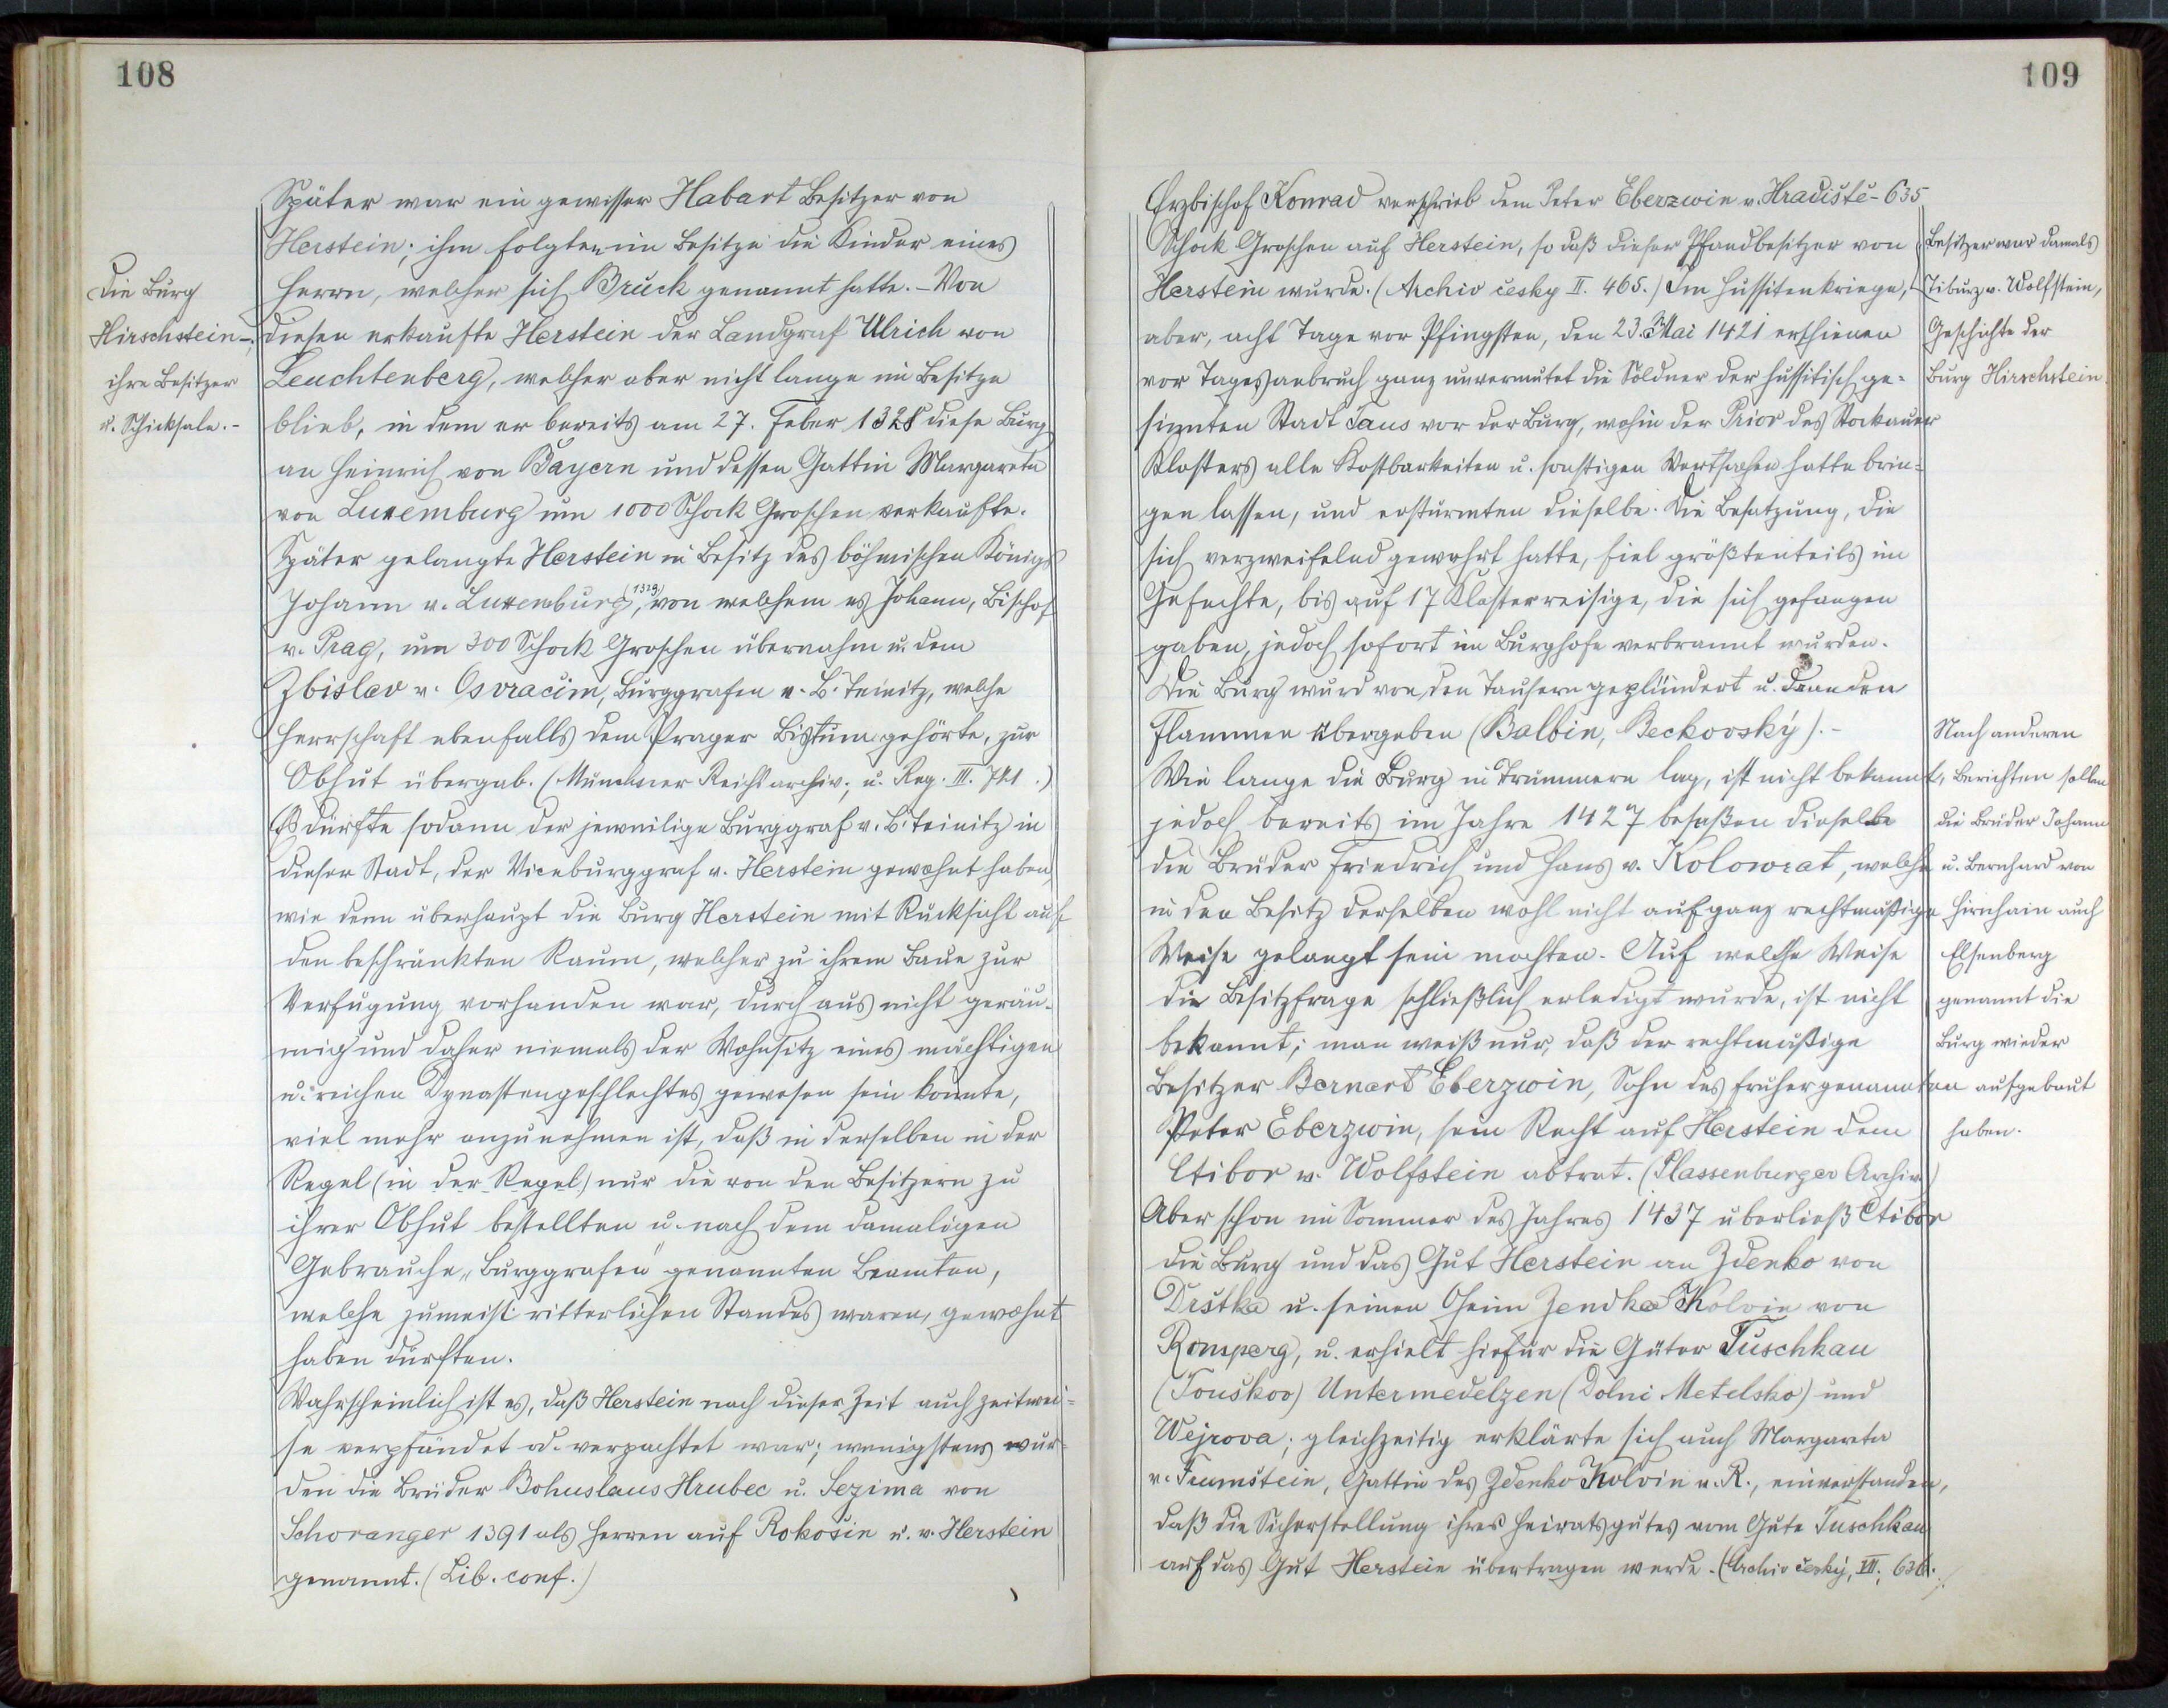 108
Später war ein gewisser Habart Besitzer von
Herstein; ihm folgten im Besitze die Kinder eines
Herrn, welcher sich Bruck genannt hatte. - Von
diesen erkaufte Herstein der Landgraf Ulrich von
Leuchtenberg, welcher aber nicht lange im Besitze
blieb, in dem er bereits am 27. Feber 1328 diese Burg
an Heinrich von Bayern und dessen Gattin Margareta
von Luxemburg um 1000 Schock Groschen verkaufte.
Später gelangte Herstein in Besitz des böhmischen Königs
Johann v. Luxenburg, 1329, von welchem es Johann, Bischof
v. Prag, um 300 Schock Groschen übernahm u. dem
Zbislav v. Osvracim, Burggrafen v. B. Teinitz, welche
Herrschaft ebenfalls dem Prager Bistum gehörte, zur
Obhut übergab. (Münchner Reichsarchiv; u. Reg. III. 741.)
Es dürfte sodann der jeweilige Burggraf v. B. Teinitz in
dieser Stadt, der Viceburggraf v. Herstein gewohnt haben,
wie denn überhaupt die Burg Herstein mit Rücksicht auf
den beschränkten Raum, welcher zu ihrem Baue zur
Verfügung vorhanden war, durchaus nicht geräu-
mig und daher niemals der Wohnsitz eines mächtigen
u. reichen Dynastengeschlechtes gewesen sein konnte,
viel mehr anzunehmen ist, daß in derselben in der
Regel (in der Regel) nur die von den Besitzern zu
ihrer Obhut bestellten u. nach dem damaligen
Gebrauche „Burggrafen" genannten Beamten,
welche zumeist ritterlichen Standes waren, gewohnt
haben dürften.
Wahrscheinlich ist es, daß Herstein nach dieser Zeit auch zeitwei-
se verpfändet od. verpachtet war; wenigstens wur-
den die Brüder Bohuslaus Hrubec u. Sezima von
Schoranger 1391 als Herren auf Rokošin u. v. Herstein
genannt. (Lib. conf.)
Die Burg
Hirschstein-,
ihre Besitzer
u. Schicksale. -
109
Erzbischof Konrad verschrieb dem Peter Eberzwin v. Hradiště - 635
Schock Groschen auf Herstein, so daß dieser Pfandbesitzer von
Herstein wurde. (Archiv česky II. 465.) Im Hussitenkriege,
aber, acht Tage vor Pfingsten, den 23. Mai 1421 erschienen
vor Tagesanbruch ganz unvermutet die Söldner der hussitisch ge-
sinnten Stadt Taus vor der Burg, wohin der Prior des Stockauer
Klosters alle Kostbarkeiten u. sonstigen Wertsachen hatte brin-
gen lassen, und erstürmten dieselbe. Die Besatzung, die
sich verzweifelnd gewehrt hatte, fiel größtenteils im
Gefechte, bis auf 17 Klosterreisige, die sich gefangen
gaben, jedoch sofort im Burghofe verbrannt wurden.
Die Burg wurd von den Tausern geplündert u. dann den
Flammen übergeben (Balbin, Beckovský). -
Wie lange die Burg in Trümmern lag, ist nicht bekannt,
jedoch bereits im Jahre 1427 besaßen dieselbe
die Brüder Friedrich und Hans v. Kolowrat, welche
in den Besitz derselben wohl nicht auf ganz rechtmäßige
Weise gelangt sein mochten. Auf welche Weise
die Besitzfrage schließlich erledigt wurde, ist nicht
bekannt; man weiß nur, daß der rechtmäßige
Besitzer Bernart Eberzwin, Sohn des früher genannten
Peter Eberzwin, sein Recht auf Herstein dem
Ctibor v. Wolfstein abtrat. (Plassenburger Archiv)
Aber schon im Sommer des Jahres 1437 überließ Ctibor
die Burg und das Gut Herstein an Zdenko von
Drštka u. seinen Oheim Zendka Kolvin von
Romperg, u. erhielt hiefür die Güter Tuschkau
(Touškov) Untermedelzen (Dolni Metelsko) und
Wejrova; gleichzeitig erklärte sich auch Margareta
v. Frumštein, Gattin des Zdenko Kolvin v. R., einverstanden,
daß die Sicherstellung ihres Heiratsgutes vom Gute Tuschkau
auf das Gut Herstein übertragen werde. (Archiv český, VII; 636.
Besitzer war damals
Tiburz v. Wolfstein,
Geschichte der
Burg Hirschstein.
Nach anderen
Berichten sollen
die Brüder Johann
u. Bernhard von
Hirnhain auch
Elsenberg
genannt die
Burg wieder
aufgebaut
haben.